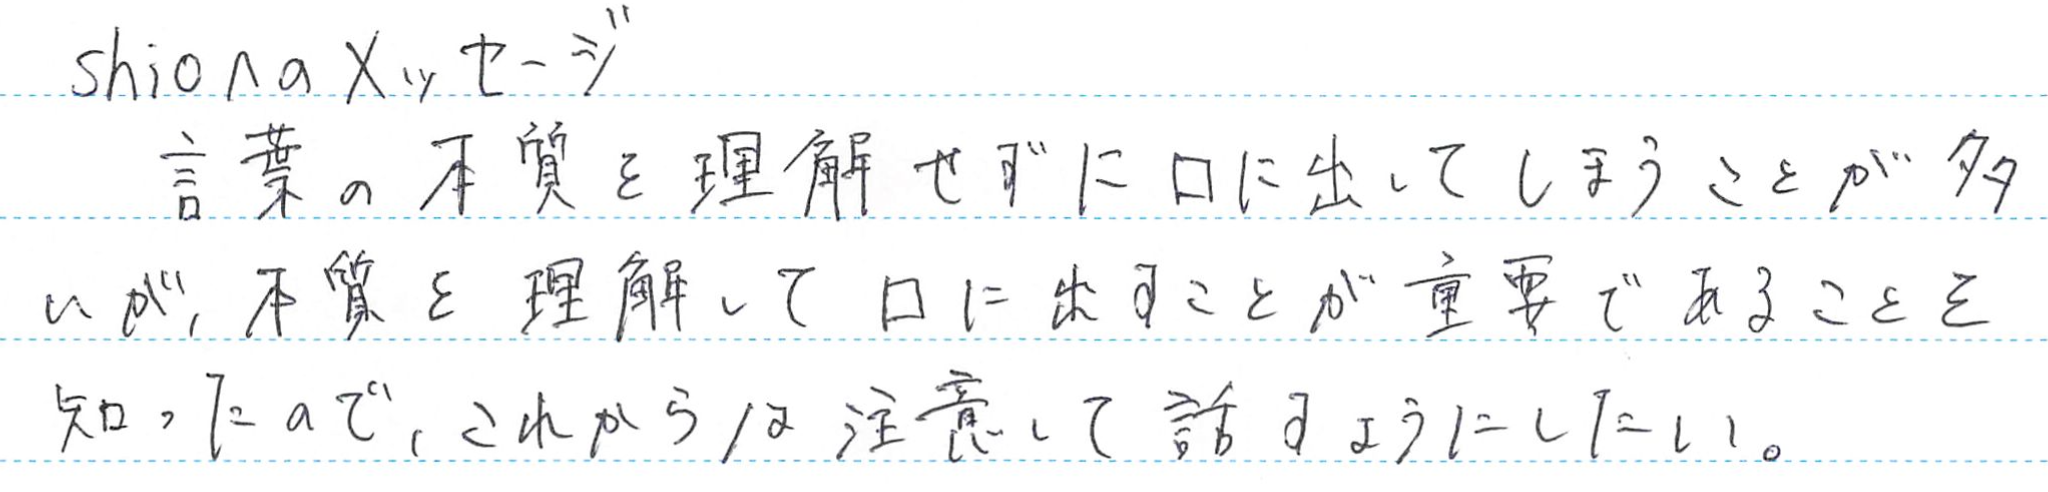 shionaメッセージ
言葉の本質を理解せずに口に出してしまうことが多
いが、本質を理解して口に出すことが重要であることを
知ったので、これからは注意して話すようにしたい。